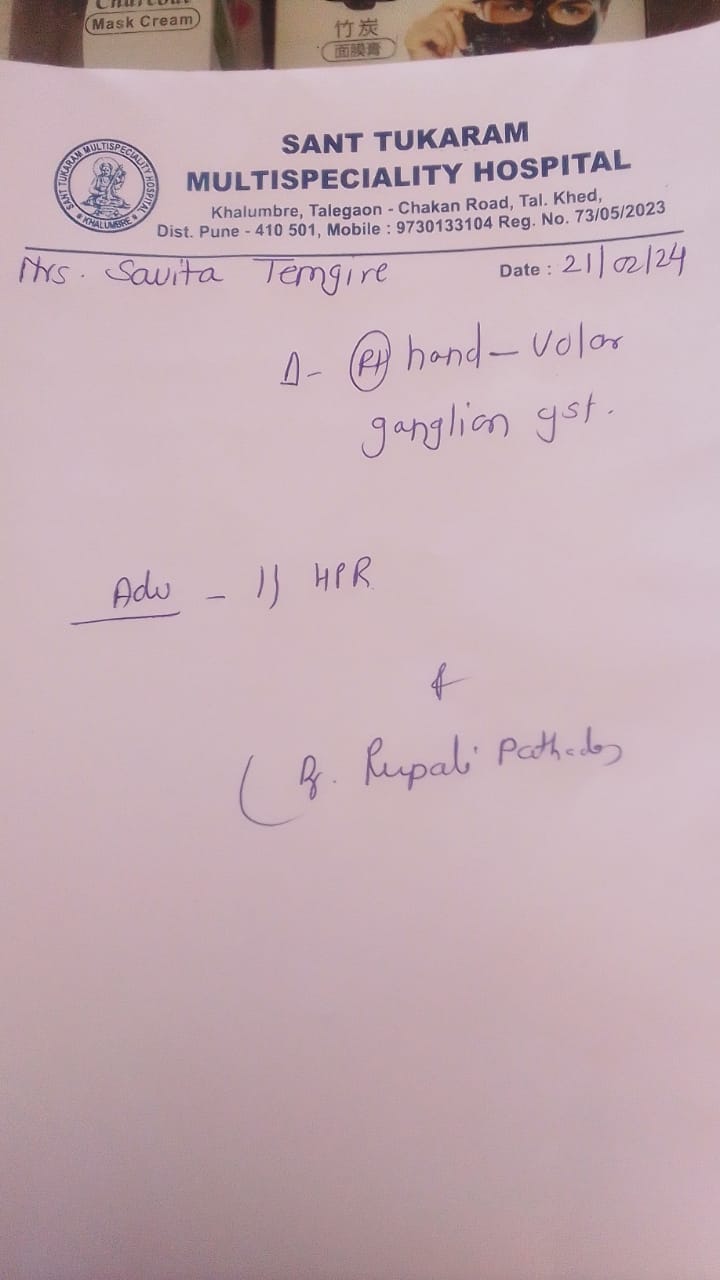 Charcoal
Mask Cream
竹炭
面膜膏
SANT TUKARAM
MULTISPECIALITY HOSPITAL
Khalumbre, Talegaon - Chakan Road, Tal. Khed,
Dist. Pune - 410 501, Mobile : 9730133104 Reg. No. 73/05/2023
SANT TUKARAM MULTISPECIALITY HOSPITAL
KHALUMBRE
Mrs. Savita Temgire Date : 21/02/24
Δ- Rt hand - volar
ganglion cyst.
Adv - 1) HPR
Dr. Rupali